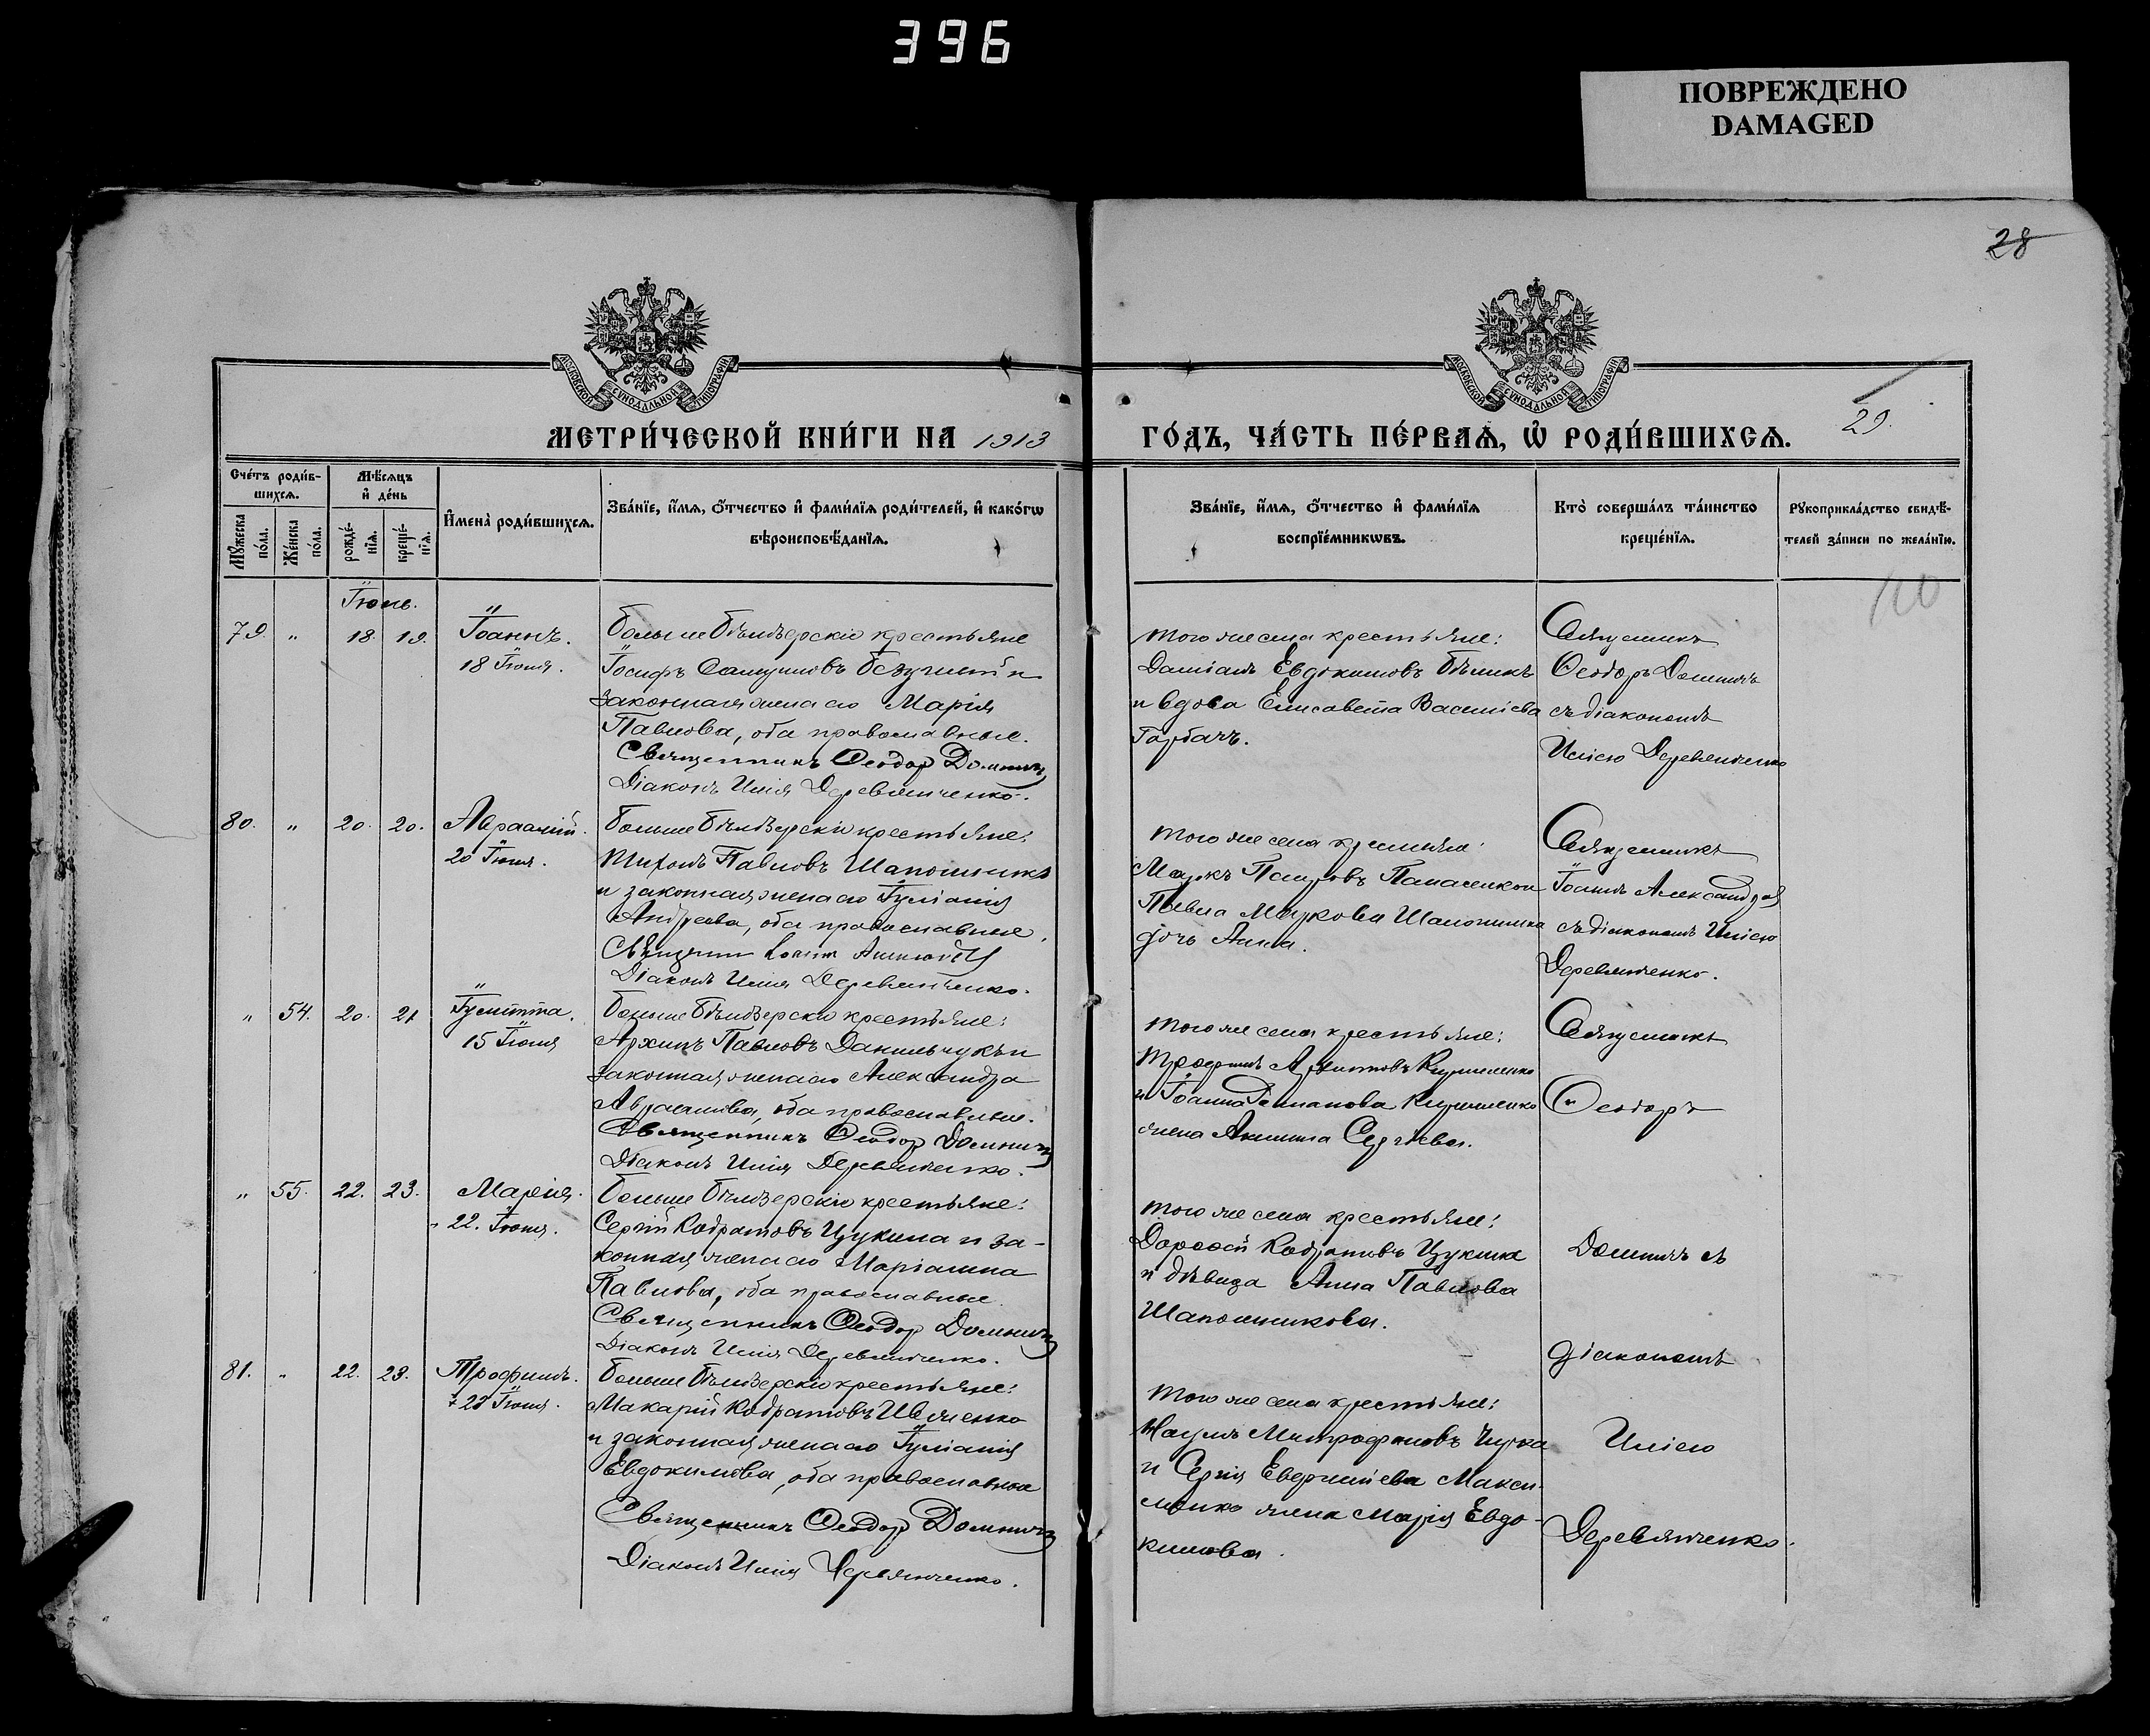 396
ПОВРЕЖДЕНО
DAMAGED
28
МОСКОВСКОЙ СѴНОДАЛЬНОЙ ТИПОГРАФІИ
МОСКОВСКОЙ СѴНОДАЛЬНОЙ ТИПОГРАФІИ
МЕТРИ́ЧЕСКОЙ КНИ́ГИ НА 1913
ГО́ДЪ, ЧА́СТЬ ПЕ́РВАѦ, Ѡ҆ РОДИ́ВШИХСѦ.
29.
Сче́тъ роди́в-
шихсѧ.
Мѹ́жеска
по́ла.
Же́нска
по́ла.
Мѣ́сѧцъ
и҆ де́нь
рожде́-
нїѧ.
креще́-
нїѧ.
И҆мена̀ роди́вшихсѧ.
Зва́нїе, и҆́мѧ, ѻ҆́тчество и҆ фами́лїѧ роди́телей, и҆ како́гѡ
вѣроисповѣ́данїѧ.
Зва́нїе, и҆́мѧ, ѻ҆́тчество и҆ фами́лїѧ
воспрїе́мникѡвъ.
Кто̀ соверша́лъ та́инство
креще́нїѧ.
Рѹкоприкла́дство свидѣ́-
телей за́писи по жела́нїю.
Іюнь.
79. " 18. 19. Іоаннъ.
18 Іюня.
Больше Бѣлозерскіе крестьяне
Іосифъ и
законная жена его Марія
Павлова, оба православные.
Священникъ Ѳеодор Домнич
Діаконъ Илія Деревянченко.
того же села крестьяне:
Даміанъ Евдокимовъ Бѣликъ
и вдова Елисавета Василіева
Горбачъ.
Священникъ
Ѳеодоръ Домничъ
съ діакономъ
Иліею Деревянченко
80. " 20. 20.
20 Іюня.
Больше Бѣлозерскіе крестьяне:
Тихонъ Павловъ Шапошникъ
и законная жена его Іуліанія
Андреева, оба православные.
Діаконъ Илія Деревянченко.
того же села крестьяне:
Маркъ Петровъ
Павла Маркова Шапошника
дочь Анна.
Священникъ
Іоаннъ
съ діакономъ Иліею
Деревянченко.
" 54. 20. 21 Іулитта.
15 Іюля
Больше Бѣлозерскіе крестьяне:
Архипъ Павловъ Данильчукъ и
законная жена его Александра
Авраамова, оба православные.
Священникъ Ѳеодор Домнич
Діаконъ Илія Деревянченко.
того же села крестьяне:
Трофимъ
и Іоанна
жена Акилина Сергѣева.
Священникъ
Ѳеодоръ
" 55. 22. 23. Марія.
22. Іюля.
Больше Бѣлозерскіе крестьяне:
Сергій Кодратовъ Цукина и за-
конная жена его Маріамна
Павлова, оба православные.
Священникъ Ѳеодор Домнич
Діаконъ Илія Деревянченко.
того же села крестьяне:
Дорофей Кодратовъ Цукина
и дѣвица Анна Павлова
Шапошникова.
Домничъ съ
діакономъ
81. " 22. 23. Трофимъ.
Больше Бѣлозерскіе крестьяне:
Макарій Кодратовъ
и законная жена его Іуліанія
Евдокимова, оба православные
Священникъ Ѳеодор Домнич
Діаконъ Илія Деревянченко.
того же села крестьяне:
Наумъ Митрофановъ
и Сергія Евфиміева Макси-
менко жена Марія Евдо-
кимова.
Иліею
Деревянченко.